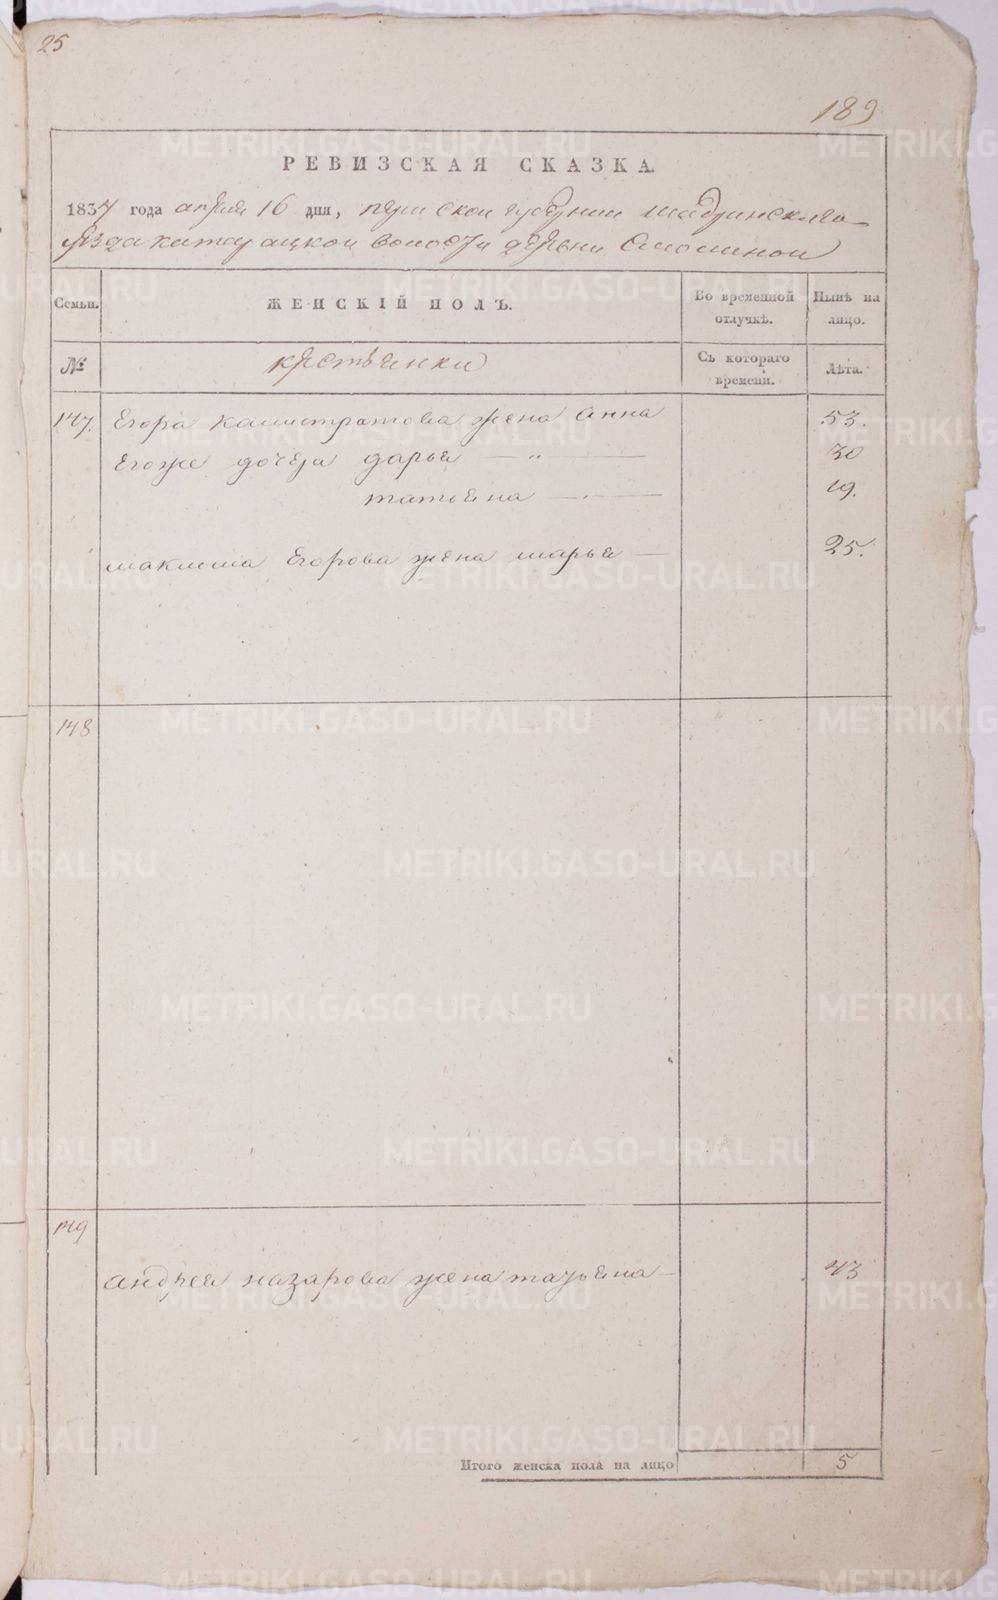 25
189
РЕВИЗСКАЯ СКАЗКА.
1837 года апреля 16 дня, пермской губернии шадринскаго
уезда катайской волости деревни
Семьи. ЖЕНСКІЙ ПОЛЪ. Во временной отлучкѣ. Нынѣ на лицо.
№ крестьянки Съ котораго времени. Лѣта.
147. Егора калистратова жена Анна 53.
Егоже дочери дарья — " — 30
татьяна — " — 19.
максима Егорова жена марья — 25.
148
149
андрея назарова жена татьяна — 43
Итого женска пола на лицо 5
METRIKI.GASO-URAL.RU